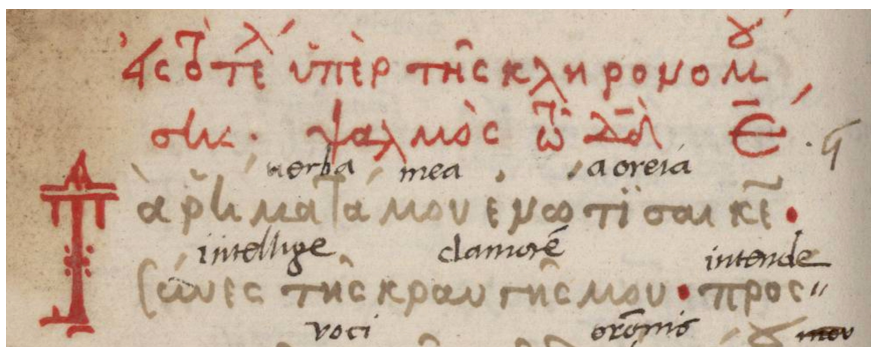 Εἰς τὸ τέλ ὑπὲρ τῆς κληρονομού
σης. ψαλμὸς τῶ δαδ Ε̄.
verba mea aoreia
Τὰ ῥήματά μου ἐνώτϊσαι κε̄.
intellige clamorē intende
σύνες τῆς κραυγῆς μου. προσ
voci orōnis